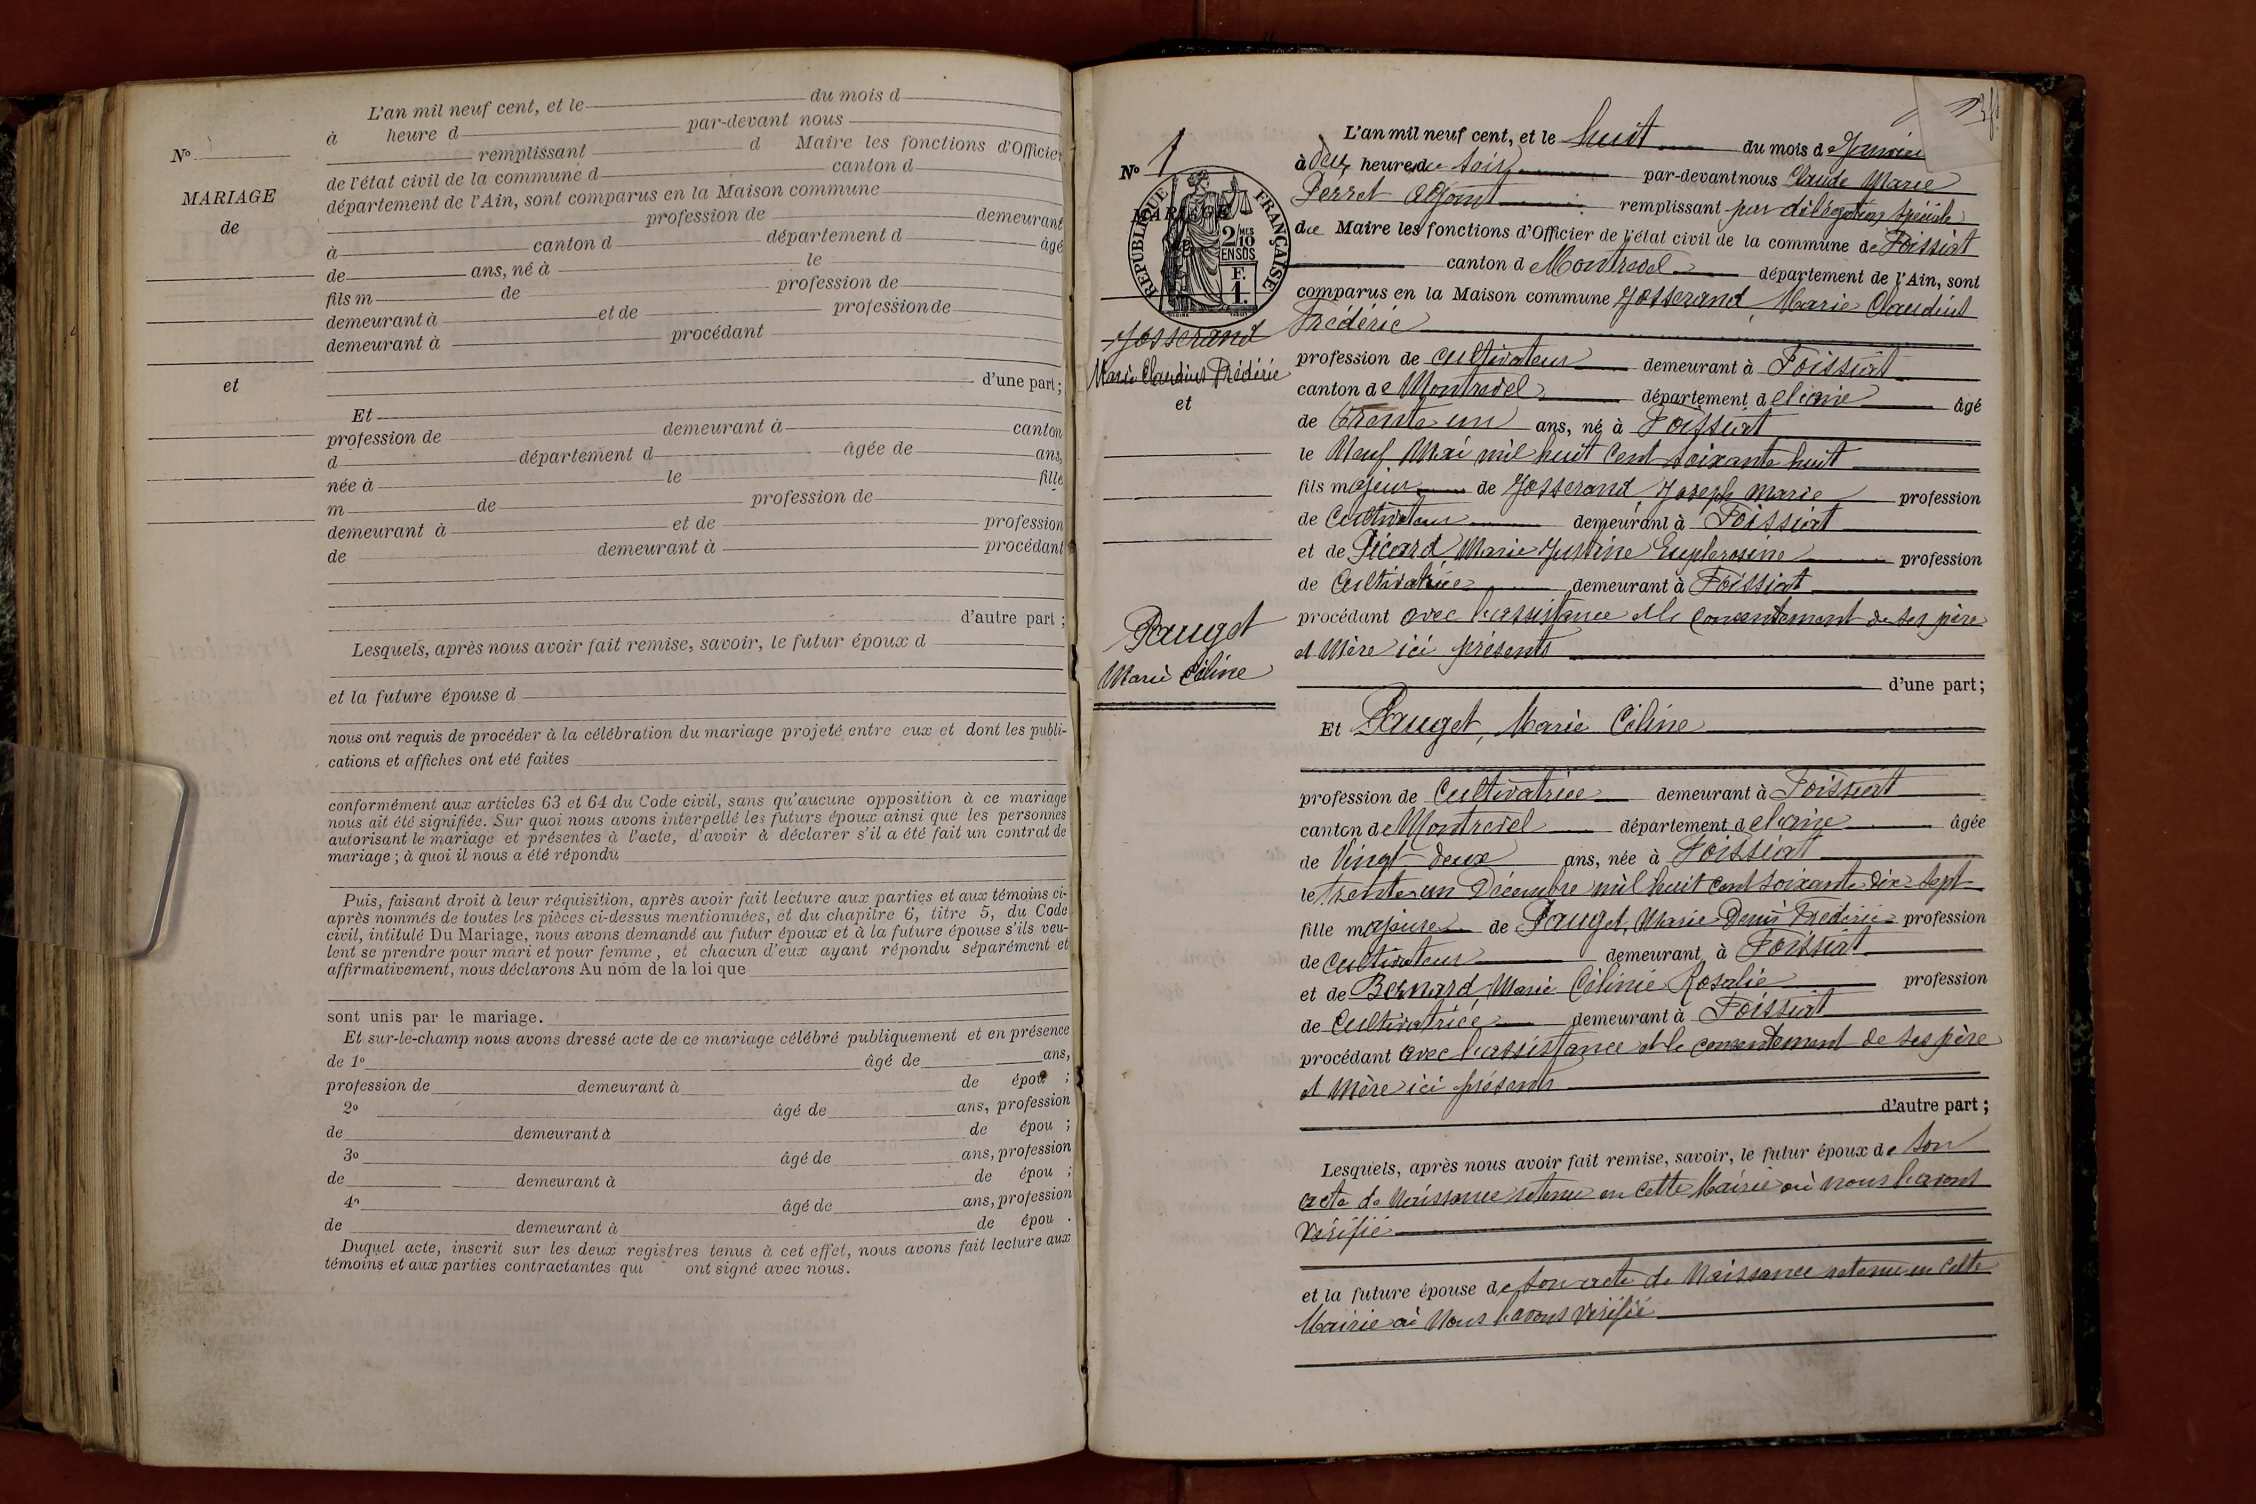 L'an mil neuf cent, et le du mois d
à heure d par-devant nous
remplissant d Maire les fonctions d'Officier
de l'état civil de la commune d canton d
département de l'Ain, sont comparus en la Maison commune
profession de demeurant
à canton d département d âgé
de ans, né à le
fils m de profession de
demeurant à et de profession de
demeurant à procédant
d'une part ;
Et
profession de demeurant à canton
d département d âgée de ans,
née à le fille
m de profession de
demeurant à et de profession
de demeurant à procédant
d'autre part ;
Lesquels, après nous avoir fait remise, savoir, le futur époux d
et la future épouse d
nous ont requis de procéder à la célébration du mariage projeté entre eux et dont les publi-
cations et affiches ont eté faites
conformément aux articles 63 et 64 du Code civil, sans qu'aucune opposition à ce mariage
nous ait été signifiée. Sur quoi nous avons interpellé les futurs époux ainsi que les personnes
autorisant le mariage et présentes à l'acte, d'avoir à déclarer s'il a été fait un contrat de
mariage ; à quoi il nous a été répondu
Puis, faisant droit à leur réquisition, après avoir fait lecture aux parties et aux témoins ci-
après nommés de toutes les pièces ci-dessus mentionnées, et du chapitre 6, titre 5, du Code
civil, intitulé Du Mariage, nous avons demandé au futur époux et à la future épouse s'ils veu-
lent se prendre pour mari et pour femme, et chacun d'eux ayant répondu séparément et
affirmativement, nous déclarons Au nom de la loi que
sont unis par le mariage.
Et sur-le-champ nous avons dressé acte de ce mariage célébré publiquement et en présence
de 1º âgé de ans,
profession de demeurant à de épou ;
2º âgé de ans, profession
de demeurant à de épou ;
3º âgé de ans, profession
de demeurant à de épou ;
4º âgé de ans, profession
de demeurant à de épou .
Duquel acte, inscrit sur les deux registres tenus à cet effet, nous avons fait lecture aux
témoins et aux parties contractantes qui ont signé avec nous.
Nº
MARIAGE
de
et
Nº 1
MARIAGE
RÉPUBLIQUE FRANÇAISE
2/10 MES
EN SUS
F.
1.
Josserand
Marie Claudius Frédéric
et
Pauget
Marie Céline
L'an mil neuf cent, et le huit du mois de Janvier
à deux heures du soir par-devant nous Claude Marie
Perret Adjoint remplissant par délégation spéciale
du Maire les fonctions d'Officier de l'état civil de la commune de Foissiat
canton de Montrevel département de l'Ain, sont
comparus en la Maison commune Josserand, Marie Claudius
Frédéric
profession de cultivateur demeurant à Foissiat
canton de Montrevel département de l'ain âgé
de trente un ans, né à Foissiat
le Neuf Mai mil huit Cent soixante huit
fils majeur de Josserand Joseph Marie profession
de Cultivateur demeurant à Foissiat
et de Picard Marie Justine Euphrosine profession
de Cultivatrice demeurant à Foissiat
procédant avec l'assistance et le consentement de ses père
et Mère ici présents
d'une part ;
Et Pauget, Marie Céline
profession de Cultivatrice demeurant à Foissiat
canton de Montrevel département de l'ain âgée
de Vingt deux ans, née à Foissiat
le trente un Décembre mil huit cent soixante dix sept
fille majeure de Pauget, Marie Denis Frédéric profession
de cultivateur demeurant à Foissiat
et de Bernard Marie Célinie Rosalie profession
de Cultivatrice demeurant à Foissiat
procédant avec l'assistance et le consentement de ses père
et Mère ici présents
d'autre part ;
Lesquels, après nous avoir fait remise, savoir, le futur époux de son
acte de Naissance retenu en cette Mairie où nous l'avons
Vérifié
et la future épouse de son acte de Naissance retenu en cette
Mairie où Nous l'avons vérifié